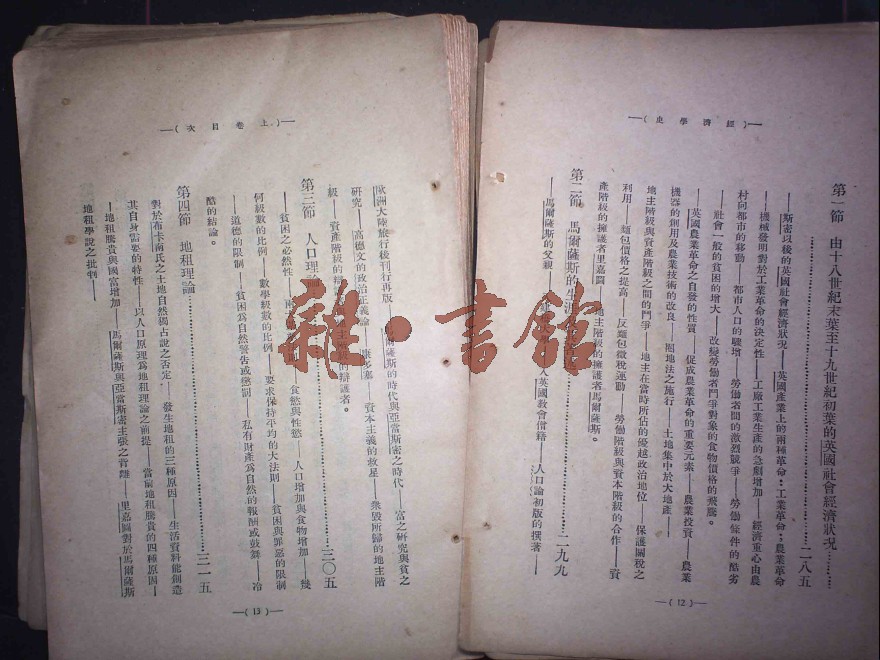 —( 經濟學史 )—
第一節　由十八世紀末葉至十九世紀初葉的英國社會經濟狀況……
……………………二八五
——斯密以後的英國社會經濟狀況——英國產業上的兩種革命：工業革命；農業革命
——機械發明對於工業革命的決定性——工廠工業生產的急劇增加——經濟重心由農
村向都市的移動——都市人口的驟增——勞働者間的激烈競爭——勞働條件的酷劣
——社會一般的貧困的增大——改變勞働者鬥爭對象的食物價格的飛騰。
——英國農業革命之自發的性質——促成農業革命的重要元素——農業投資——農業
機器的創用及農業技術的改良——圈地法之施行——土地集中於大地產——
地主階級與資產階級之間的鬥爭——地主在當時所佔的優越政治地位——保護關稅之
利用——麵包價格之提高——反麵包徵稅運動——勞働階級與資本階級的合作——資
產階級的擁護者里嘉圖——地主階級的擁護者馬爾薩斯。
第二節　馬爾薩斯的生涯……二九九
——馬爾薩斯的父親——入英國敎會僧籍——人口論初版的撰著——
—( 12 )—
—( 上卷目次 )—
歐洲大陸旅行後刊行再版——馬爾薩斯的時代與亞當斯密之時代——富之研究與貧之
研究——高德文的政治正義論——康多塞——資本主義的救星——衆毀所歸的地主階
級——資產階級的辯——地主階級的辯護者。
第三節　人口理論……三〇五
——貧困之必然性——食慾與性慾——人口增加與食物增加——幾
何級數的比例——數學級數的比例——要求保持平均的大法則——貧困與罪惡的限制
——道德的限制——貧困爲自然警告或懲罰——私有財產爲自然的報酬或鼓舞——冷
酷的結論。
第四節　地租理論……三一五
對於布卡南氏之土地自然獨占說之否定——發生地租的三種原因——生活資料能創造
其自身需要的特性——以人口原理爲地租理論之前提——當前地租騰貴的四種原因——
——地租騰貴與國富增加——馬爾薩斯與亞當斯密主張之背離——里嘉圖對於馬爾薩斯
地租學說之批判——
—( 13 )—
雜·書館